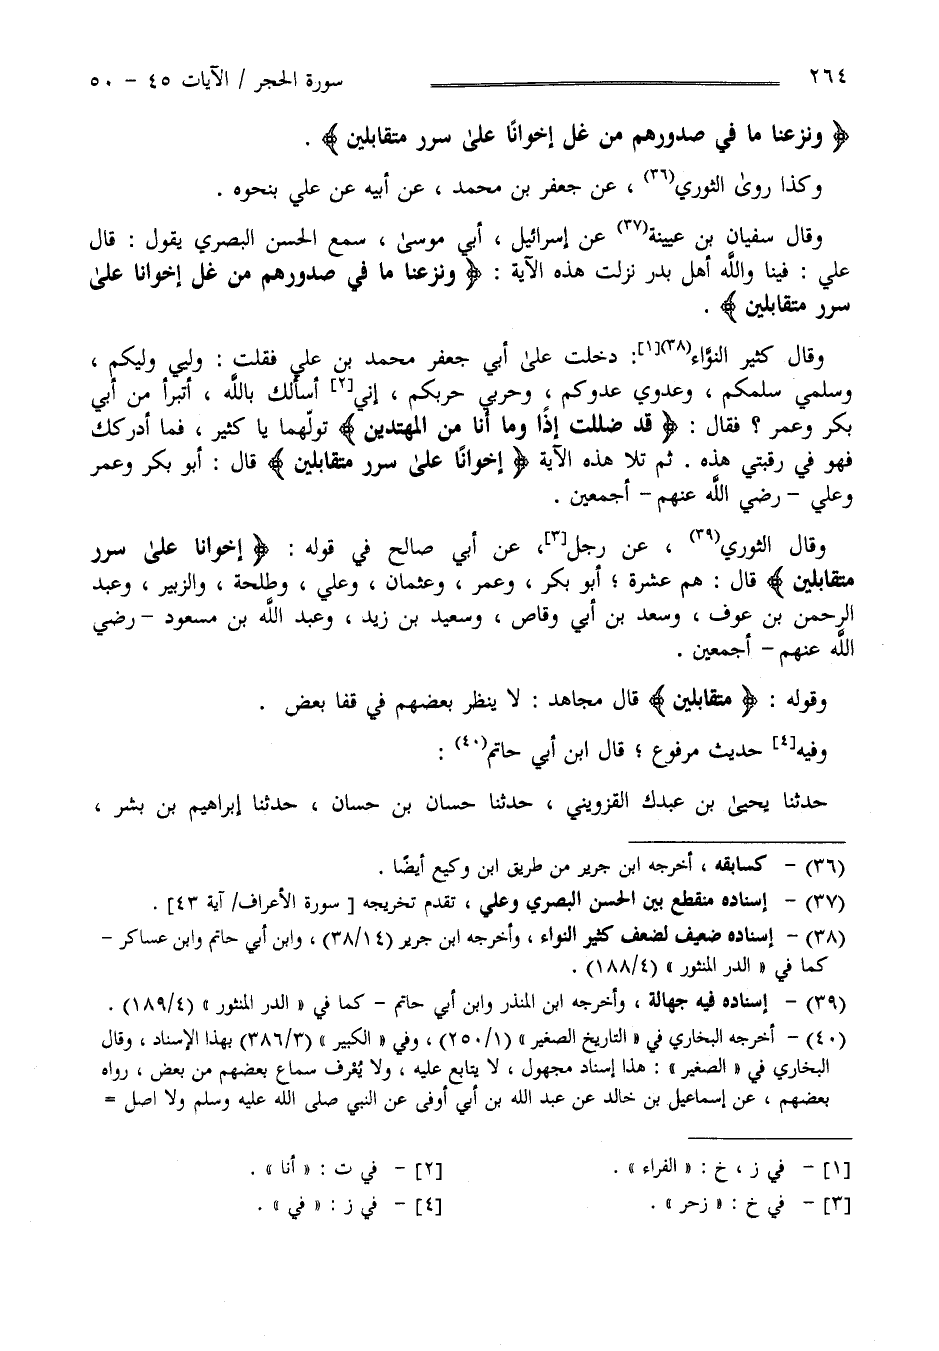 ٢٦٤ سورة الحجر / الآيات ٤٥ - ٥٠
﴿ ونزعنا ما في صدورهم من غل إخوانًا علىٰ سرر متقابلين ﴾ .
وكذا روىٰ الثوري(٣٦) ، عن جعفر بن محمد ، عن أبيه عن علي بنحوه .
وقال سفيان بن عيينة(٣٧) عن إسرائيل ، أبي موسىٰ ، سمع الحسن البصري يقول : قال
علي : فينا واللَّه أهل بدر نزلت هذه الآية : ﴿ ونزعنا ما في صدورهم من غل إخوانا علىٰ
سرر متقابلين ﴾ .
وقال كثير النوَّاء(٣٨)[١]: دخلت علىٰ أبي جعفر محمد بن علي فقلت : وليي وليكم ،
وسلمي سلمكم ، وعدوي عدوكم ، وحربي حربكم ، إني[٢] أسألك باللَّه ، أتبرأ من أبي
بكر وعمر ؟ فقال : ﴿ قد ضللت إذًا وما أنا من المهتدين ﴾ تولّهما يا كثير ، فما أدركك
فهو في رقبتي هذه . ثم تلا هذه الآية ﴿ إخوانًا علىٰ سرر متقابلين ﴾ قال : أبو بكر وعمر
وعلي - رضي اللَّه عنهم - أجمعين .
وقال الثوري(٣٩) ، عن رجل[٣]، عن أبي صالح في قوله : ﴿ إخوانا علىٰ سرر
متقابلين ﴾ قال : هم عشرة ؛ أبو بكر ، وعمر ، وعثمان ، وعلي ، وطلحة ، والزبير ، وعبد
الرحمن بن عوف ، وسعد بن أبي وقاص ، وسعيد بن زيد ، وعبد اللَّه بن مسعود - رضي
اللَّه عنهم - أجمعين .
وقوله : ﴿ متقابلين ﴾ قال مجاهد : لا ينظر بعضهم في قفا بعض .
وفيه[٤] حديث مرفوع ؛ قال ابن أبي حاتم(٤٠) :
حدثنا يحيىٰ بن عبدك القزويني ، حدثنا حسان بن حسان ، حدثنا إبراهيم بن بشر ،
(٣٦) - كسابقه ، أخرجه ابن جرير من طريق ابن وكيع أيضًا .
(٣٧) - إسناده منقطع بين الحسن البصري وعلي ، تقدم تخريجه [ سورة الأعراف/ آية ٤٣] .
(٣٨) - إسناده ضعيف لضعف كثير النواء ، وأخرجه ابن جرير (٣٨/١٤) ، وابن أبي حاتم وابن عساكر -
كما في « الدر المنثور » (١٨٨/٤) .
(٣٩) - إسناده فيه جهالة ، وأخرجه ابن المنذر وابن أبي حاتم - كما في « الدر المنثور » (١٨٩/٤) .
(٤٠) - أخرجه البخاري في « التاريخ الصغير » (٢٥٠/١) ، وفي « الكبير » (٣٨٦/٣) بهذا الإسناد ، وقال
البخاري في « الصغير » : هذا إسناد مجهول ، لا يتابع عليه ، ولا يُعْرف سماع بعضهم من بعض ، رواه
بعضهم ، عن إسماعيل بن خالد عن عبد الله بن أبي أوفى عن النبي صلى الله عليه وسلم ولا اصل =
[١] - في ز ، خ : « الفراء » . [٢] - في ت : « أنا » .
[٣] - في خ : « زحر » . [٤] - في ز : « في » .